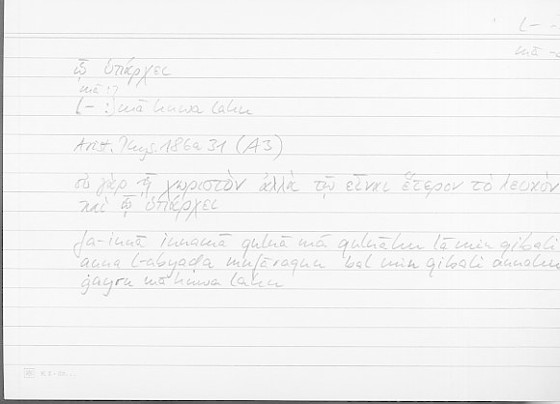 ᾧ ὑπάρχει
mā
l- :) mā huwa lahu
Arist. Phys. 186a31 (A3)
οὐ γὰρ ᾗ χωριστὸν ἀλλὰ τῷ εἶναι ἕτερον τὸ λευκὸν
καὶ ᾧ ὑπάρχει
fa-innā innamā qulnā mā qulnāhu lā min qibali
anna l-abyaḍa mufāraqun bal min qibali annahu
ġayru mā huwa lahu